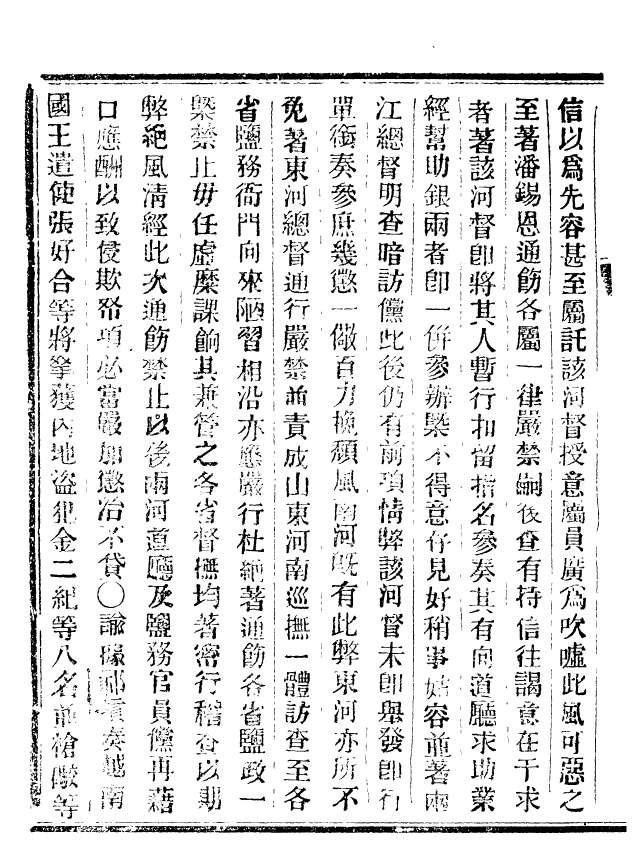 信以爲先容甚至屬託該河督授意屬員廣爲吹噓此風可惡之
至著潘錫恩通飭各屬一律嚴禁嗣後查有持信往謁意在干求
者著該河督卽將其人暫行扣留指名參奏其有向道廳求助業
經幫助銀兩者卽一併參辦槩不得意存見好稍事姑容並著兩
江總督明查暗訪儻此後仍有前項情弊該河督未卽舉發卽行
單銜奏參庶幾懲一儆百力挽頹風南河旣有此弊東河亦所不
免著東河總督通行嚴禁並責成山東河南巡撫一體訪查至各
省鹽務衙門向來陋習相沿亦應嚴行杜絕著通飭各省鹽政一
槩禁止毋任虛糜課餉其兼管之各省督撫均著密行稽查以期
弊絕風清經此次通飭禁止以後兩河道廳及鹽務官員儻再藉
口應酬以致侵欺帑項必當嚴加懲治不貸○諭據祁𡎴奏越南
國王遣使張好合等將拏獲內地盜犯金二紀等八名並槍礮等